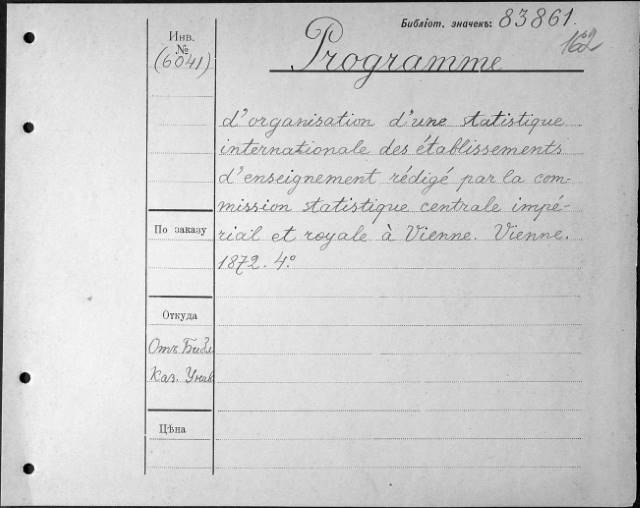 Библіот. значекъ: 83861.
162
Инв.
№
(6041)
Programme
d'organisation d'une statistique
internationale des établissements
d'enseignement rédigé par la com-
mission statistique centrale impé-
rial et royale à Vienne. Vienne.
1872. 4°
По заказу
Откуда
Отъ Библ.
Каз. Унив.
Цѣна